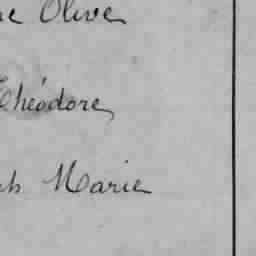 Olive
Théodore
Marie